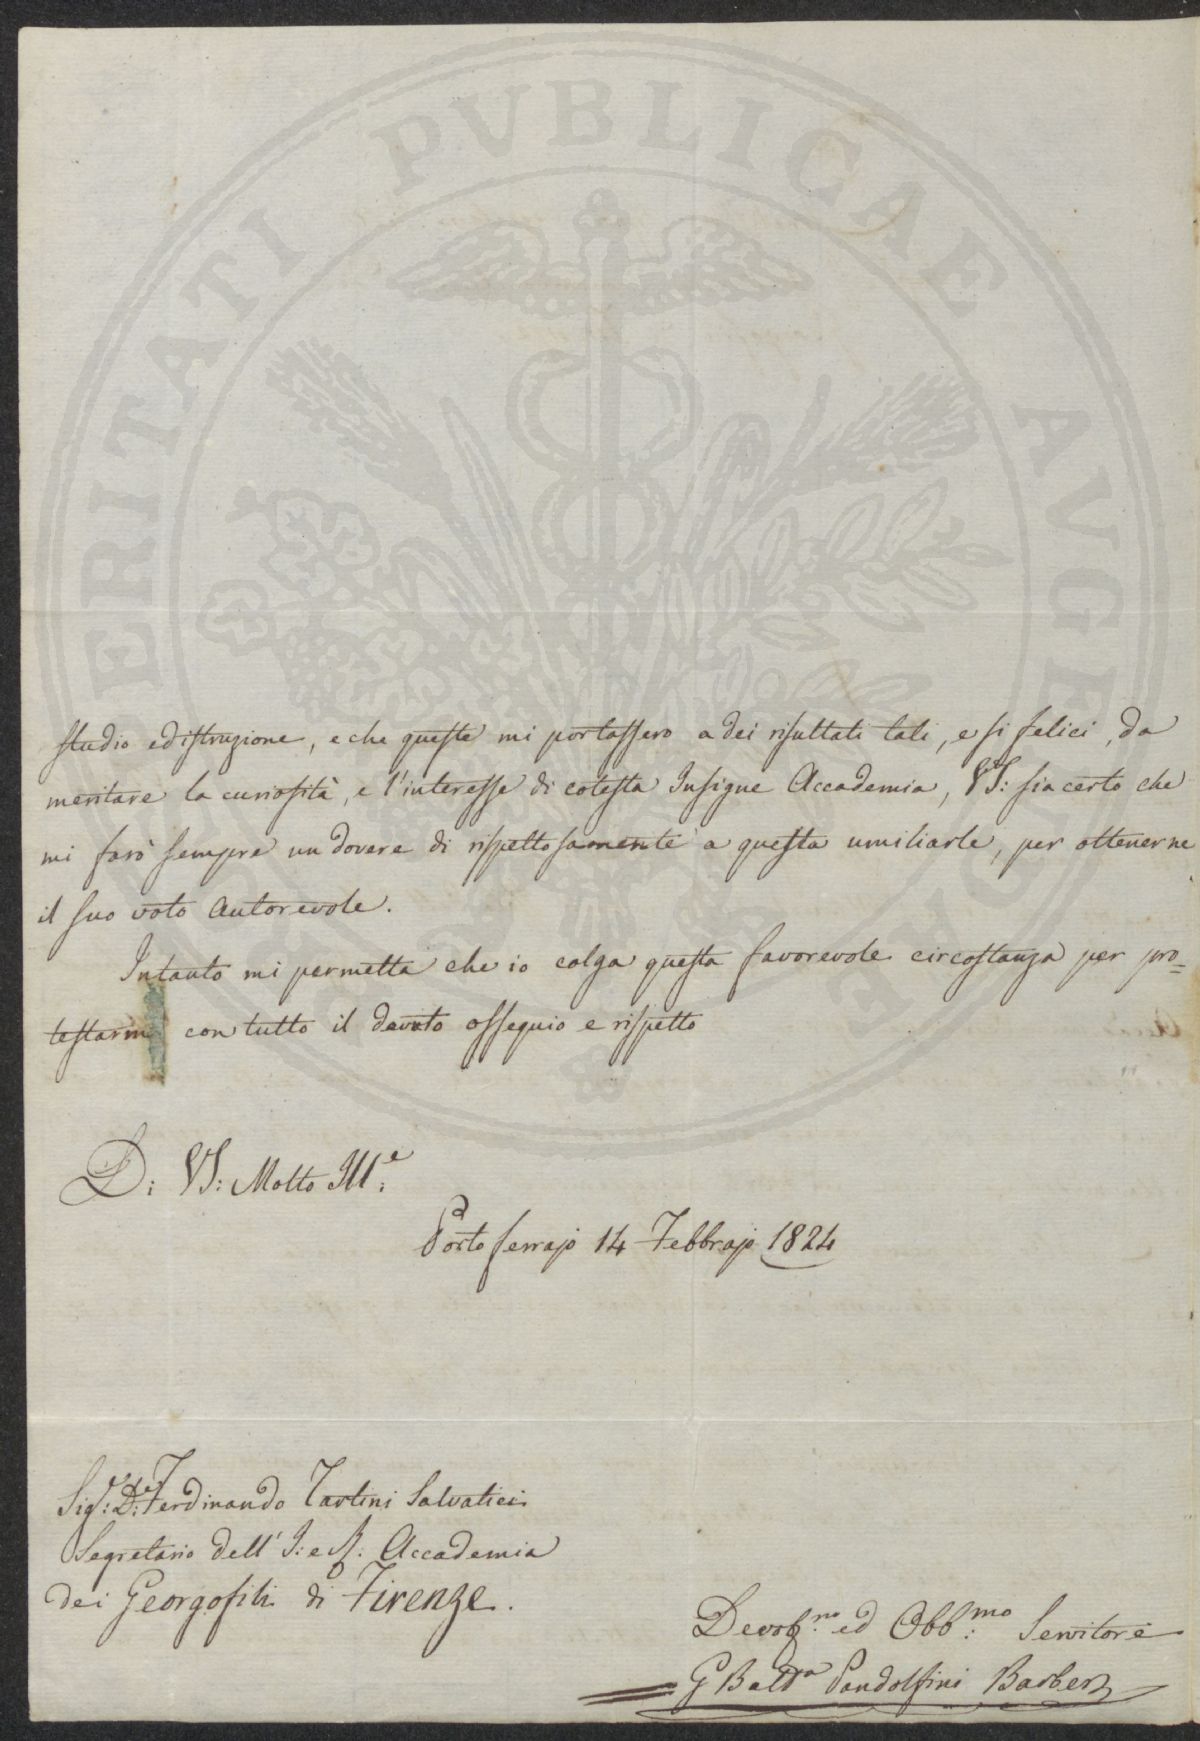 PROSPERITATI PVBLICAE AVGENDAE
studio ed istruzione, e che queste mi portassero a dei risultati tali, e si felici, da
meritare la curiosità, e l'interesse di cotesta Insigne Accademia, VS: sia certo che
mi farò sempre un dovere di rispettosamente a questa umiliarle, per ottenerne
il suo voto autorevole.
Intanto mi permetta che io colga questa favorevole circostanza per pro=
testarmi con tutto il devoto ossequio e rispetto
D: VS: Molto Ill:e
Porto ferrajo 14 Febbrajo 1824
Sig:e D:re Ferdinando Tartini Salvatici
Segretario dell' I: e R: Accademia
dei Georgofili di Firenze.
Devot:mo ed Obb:mo Servitore
G Batta Pandolfini Barberi